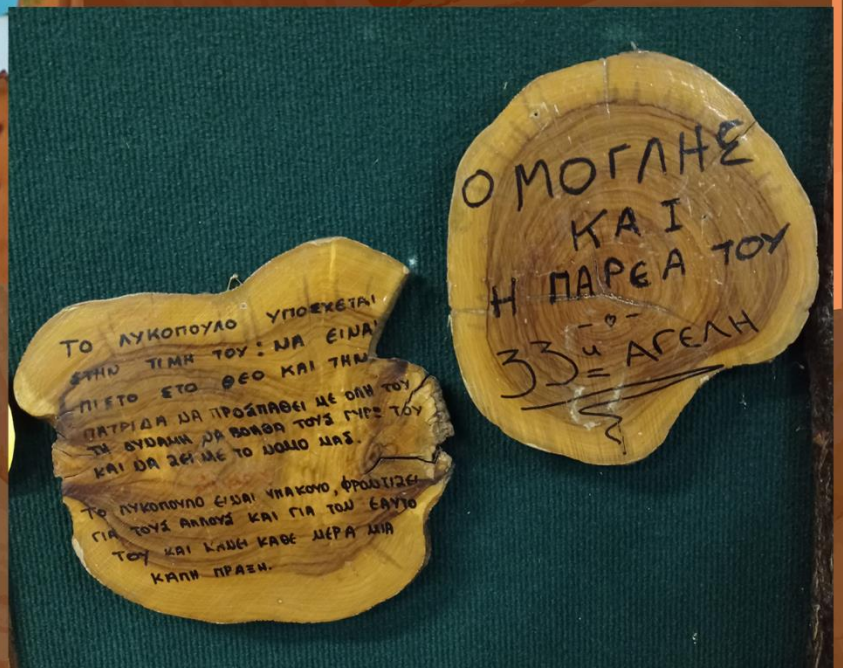 ΤΟ ΛΥΚΟΠΟΥΛΟ ΥΠΟΣΧΕΤΑΙ
ΣΤΗΝ ΤΙΜΗ ΤΟΥ: ΝΑ ΕΙΝΑΙ
ΠΙΣΤΟ ΣΤΟ ΘΕΟ ΚΑΙ ΤΗΝ
ΠΑΤΡΙΔΑ ΝΑ ΠΡΟΣΠΑΘΕΙ ΜΕ ΟΛΗ ΤΟΥ
ΤΗ ΔΥΝΑΜΗ ΝΑ ΒΟΗΘΑ ΤΟΥΣ ΓΥΡΩ ΤΟΥ
ΚΑΙ ΝΑ ΖΕΙ ΜΕ ΤΟ ΝΟΜΟ ΜΑΣ.
ΤΟ ΛΥΚΟΠΟΥΛΟ ΕΙΝΑΙ ΥΠΑΚΟΥΟ, ΦΡΟΝΤΙΖΕΙ
ΓΙΑ ΤΟΥΣ ΑΛΛΟΥΣ ΚΑΙ ΓΙΑ ΤΟΝ ΕΑΥΤΟ
ΤΟΥ ΚΑΙ ΚΑΝΕΙ ΚΑΘΕ ΜΕΡΑ ΜΙΑ
ΚΑΛΗ ΠΡΑΞΗ.
Ο ΜΟΓΛΗΣ
ΚΑΙ
Η ΠΑΡΕΑ ΤΟΥ
33η ΑΓΕΛΗ